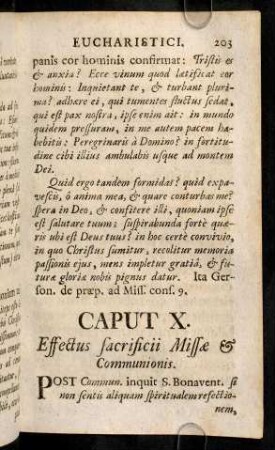 EUCHARISTICI. 203
panis cor hominis confirmat: Tristis es
& anxia? Ecce vinum quod latificat cor
hominis: Inquietant te, & turbant pluri-
ma? adhære ei, qui tumentes fluctus sedat,
qui est pax nostra, ipse enim ait: in mundo
quidem pressuram, in me autem pacem ha-
bebitis: Peregrinaris à Domino? in fortitu-
dine cibi illius ambulabis usque ad montem
Dei.
Quid ergo tandem formidas? quid expa-
vescis, ô anima mea, & quare conturbas me?
spera in Deo, & confitere illi, quoniam ipse
est salutare tuum: suspirabunda fortè quæ-
ris ubi est Deus tuus? in hoc certè convivio,
in quo Christus sumitur, recolitur memoria
passionis ejus, mens impletur gratiâ, & fu-
turæ gloriæ nobis pignus datur. Ita Ger-
son. de præp. ad Miss. cons. 9.
CAPUT X.
Effectus sacrificii Missæ &
Communionis.
POST Commun. inquit S. Bonavent. si
non sentis aliquam spiritualem refectio-
nem,